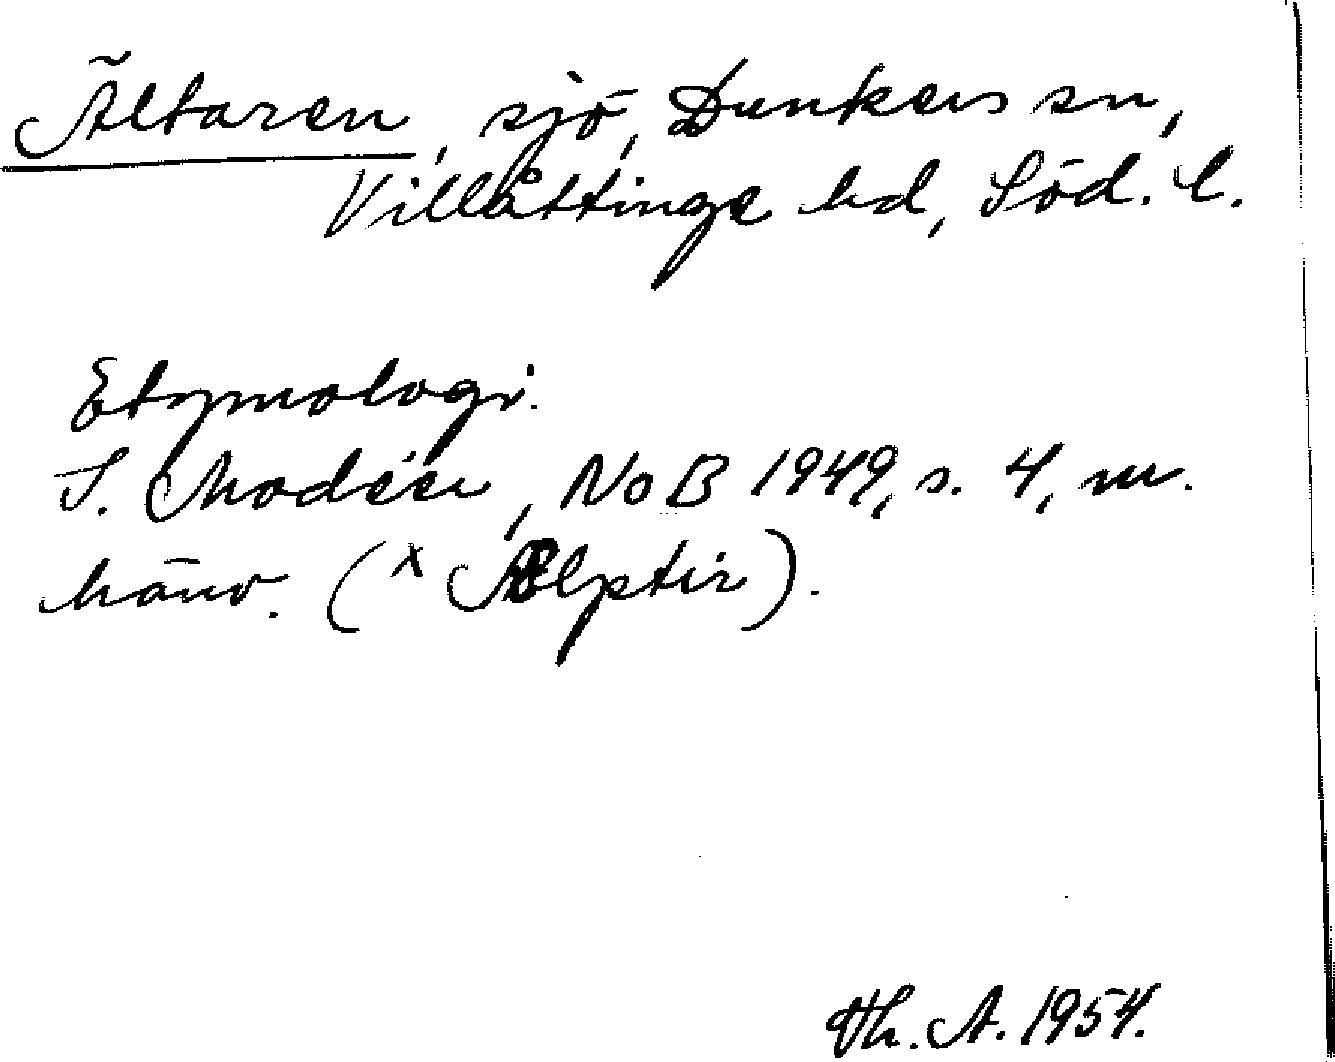 Ältaren, sjö, Dunkers sn,
Villåttinge hd, Söd. l.
Etymologi.
I. Modéer, NoB 1949, s. 4, m.
hänv. (× Ælptir).
Th. A. 1954.